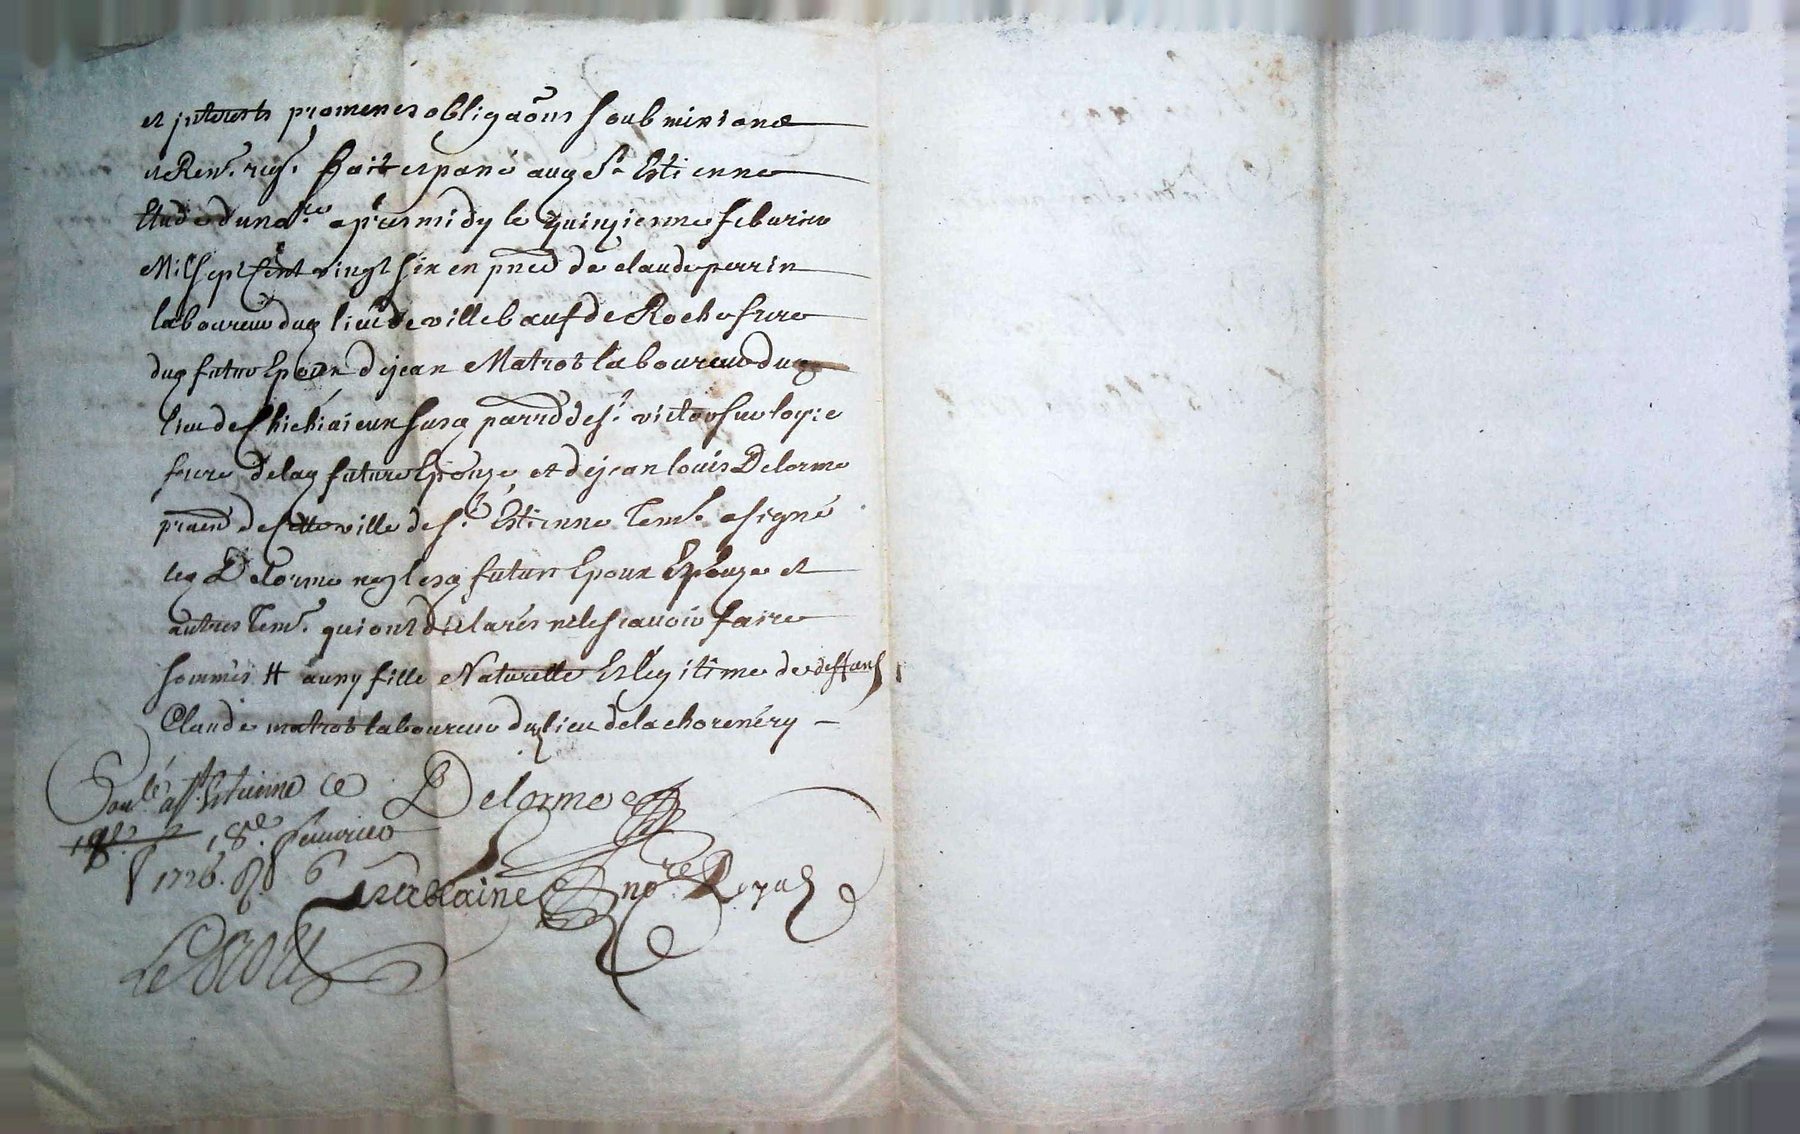 et jnterests promenes obligaons soubmissions
et Ren.ᵒⁿ req.ˢ fait et passé aud St Estienne
Etude du no.ʳᵉ apres midy le quinzieme febvrier
Mil sept cent vingt six en pnce de claude perrin
laboureur dud lieu de villebauf de Roche frere
dud futur Epoux de jean Matrot laboureur dud
lieu de susd parr de s.ᵗ victor sur loyre
frere de lad future Epouze, et de jean louis Delorme
pratn de cette ville de s.ᵗ Estienne tem.ˢ a signé
led Delorme no lesd futurs Epoux Epouze et
autres tem.ˢ qui ont déclarés ne le scavoir faire
sommés # auny fille Naturelle et legitime de deffunt
Claude matrot laboureur du lieu de la
a St Estienne ce
18.ᵉ febvrier
1726.
Delorme
no.ʳᵉ Royal